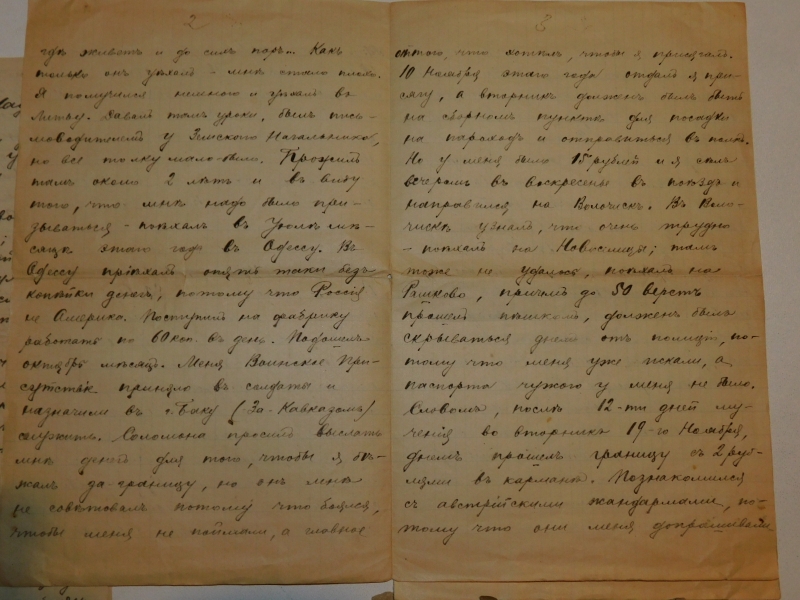 2
гдѣ живетъ и до сихъ поръ... Какъ
только онъ уѣхалъ – мнѣ стало плохо.
Я помучился немного и уѣхалъ въ
Литву. Давалъ тамъ уроки, былъ пись-
моводителемъ у Земскаго Начальника,
но все толку мало было. Прожилъ
тамъ около 2 лѣтъ и въ виду
того, что мнѣ надо было при-
зываться – поѣхалъ въ Іюлѣ мѣ-
сяцѣ этаго года въ Одессу. Въ
Одессу пріѣхалъ опять таки безъ
копѣйки денегъ, потому что Россія
не Америка. Поступилъ на фабрику
работать по 60 коп. въ день. Подошелъ
октябрь мѣсяцъ. Меня Воинское При-
сутствіе приняло въ солдаты и
назначили въ г. Баку (За-Кавказомъ)
служить. Соломона просилъ выслать
мнѣ денегъ для того, чтобы я бѣ-
жалъ за-границу, но онъ мнѣ
не совѣтовалъ потому что боялся,
чтобы меня не поймали, а главное
3
оттого, что хотѣлъ, чтобы я присягалъ.
10 Ноября этаго года отдалъ я при-
сягу, а вторникъ долженъ былъ быть
на сборномъ пунктѣ для посадки
на пароходъ и отправиться въ полкъ.
Но у меня было 15 рублей и я сѣлъ
вечеромъ въ воскресенье въ поѣздъ и
направился на Волочискъ. Въ Воло-
чискѣ узналъ, что очень трудно
– поѣхалъ на Новоселицы; тамъ
тоже не удалось, поѣхалъ на
Рашково, причемъ до 50 верстъ
прошелъ пѣшкомъ, долженъ былъ
скрываться днемъ отъ полиціи, по-
тому что меня уже искали, а
паспорта чужого у меня не было.
Словомъ, послѣ 12-ти дней му-
ченія во вторникъ 19-го Ноября,
днемъ прошелъ границу съ 2 руб-
лями въ карманѣ. Познакомился
съ австрійскими жандармами, по-
тому что они меня допрашивали